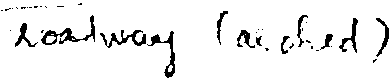 roadway (arched)